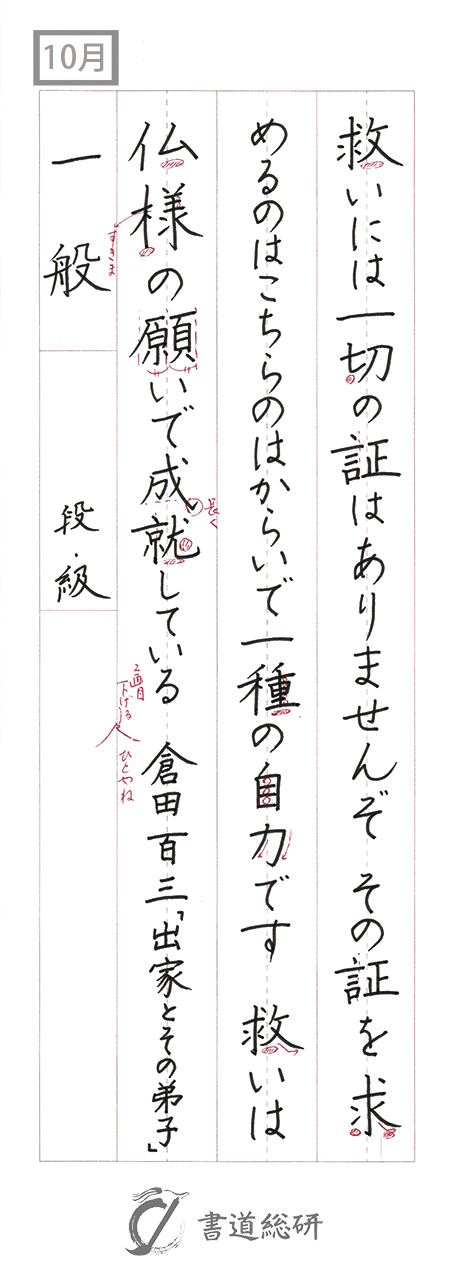 10月
救いには一切の証はありませんぞ その証を求
めるのはこちらのはからいで一種の自力です 救いは
仏様の願いで成就している 倉田百三「出家とその弟子」
すきま
長く
2画目
下げる
人
ひとやね
一般
段・級
書道総研